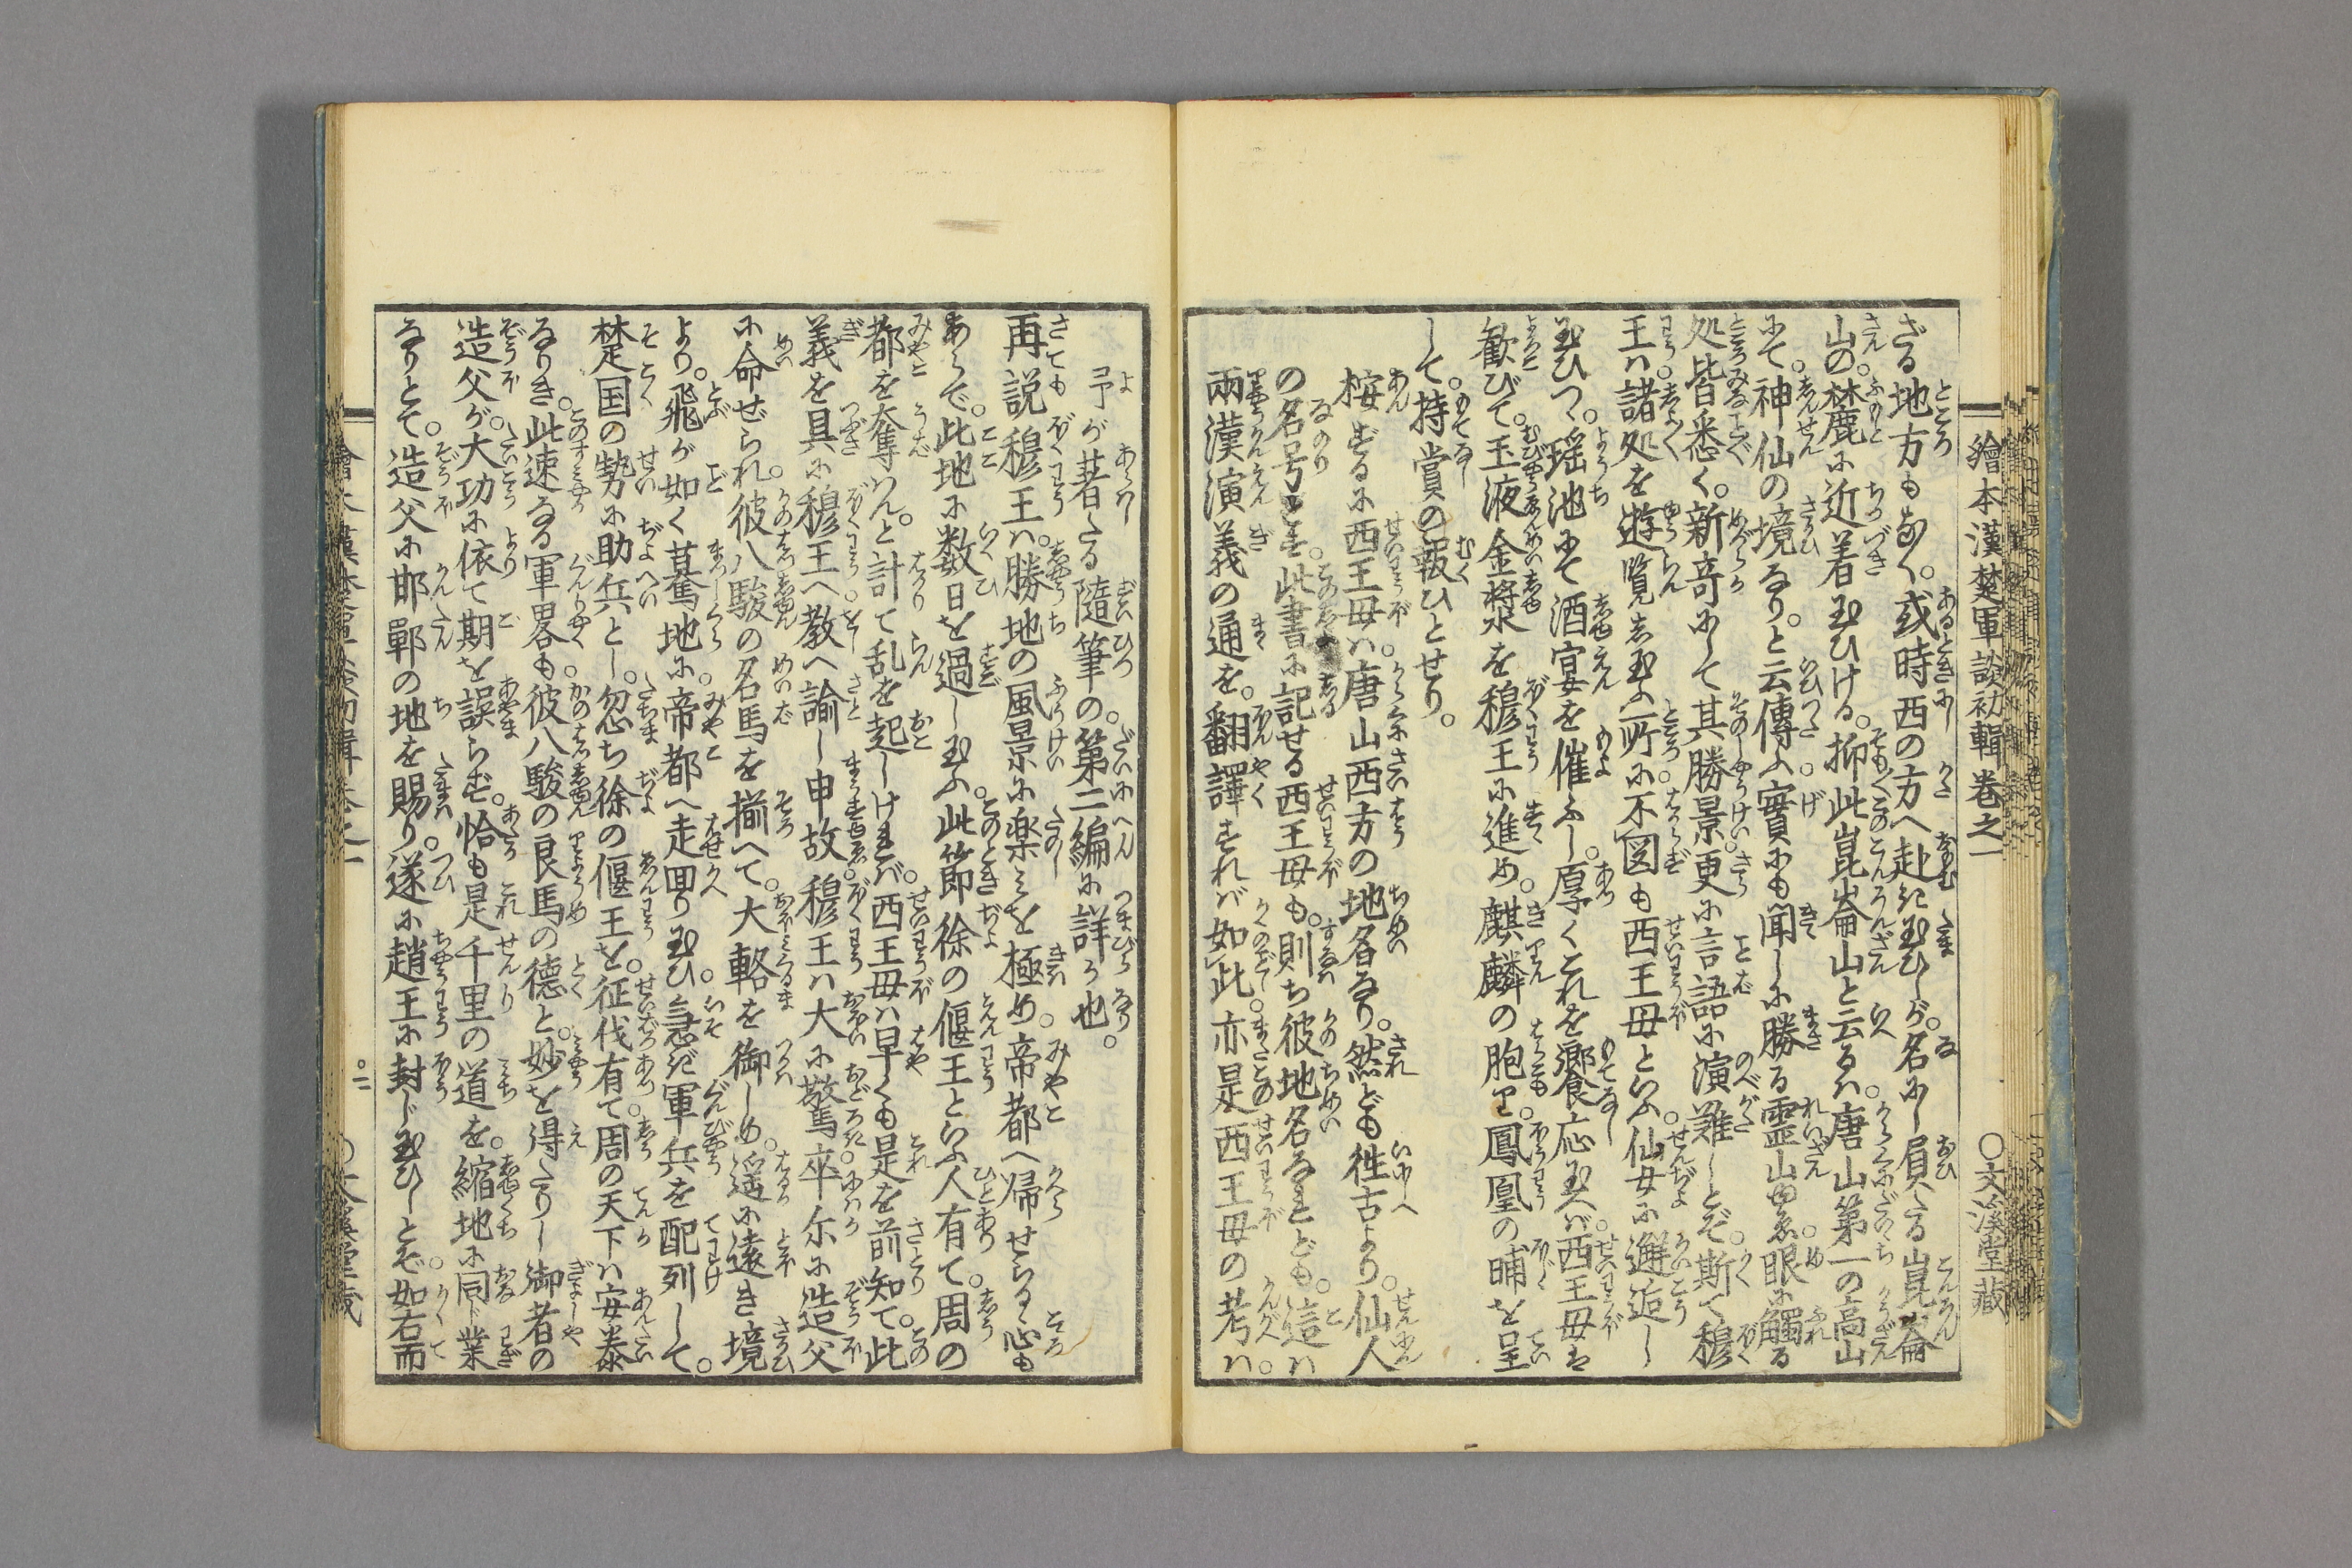 繪本漢楚軍談初輯巻之一
〇文溪堂藏
ざる地方もなく。或時西の方へ赴き玉ひしが。名にし屓たる崑崙
山の。禁麓に近着玉ひける。抑此崑崙山と云るハ。唐山第一の高山
にて。神仙の境なり。と云傳ふ。實にも聞しに勝る霊山ゆゑ。眼に觸る
処皆悉く。新竒にして其勝景。更に言語に演難しとぞ。斯て穆
王ハ。諸処を遊覧し玉ふ所に。不図も西王母といふ。仙女に邂逅し
玉ひつゝ。瑶池にて酒宴を催ふし。厚くこれを饗応玉へバ。西王母も
歓びて。玉液金漿を穆王に進め。麒麟の胞や。鳳凰の晡を呈
して。持賞の報ひとせり。
桉ずるに西王母ハ。唐山西方の地名なり。然ども徃古より。仙人
の名号とす。此書に記せる西王母も。則ち彼地名なれども。這ハ
兩漢演義の通を。翻譯すれバ如此。亦是西王母の考ハ。
予が著したる隨筆の。第二編に詳か也。
再説穆王ハ。勝地の風景に楽みを極め。帝都へ帰せらるゝ心も
あらで。此地に数日を過し玉ふ。此節徐の偃王といふ人有て。周の
都を奪ハん。と計て乱を起しけれバ。西王母ハ早くも是を前知て。此
義を具に穆王へ。教へ諭し申故。穆王ハ大に驚。卒尓に造父
に命ぜられ。彼八駿の名馬を揃へて。大輅を御しめ。遥に遠き境
より。飛が如く驀地に。帝都へ走回り玉ひ。急ぎ軍兵を配列して。
楚国の勢に助兵とし。忽ち徐の偃王を。征伐有て。周の天下ハ安泰
なりき。此速なる軍畧も。彼八駿の良馬の德と。妙を得たりし御者の
造父が。大功に依て期を誤らず。恰も是千里の道を。縮地に同じ業
なりとて。造父に邯鄲の地を賜り。遂に趙王に封じ玉ひしとぞ。如右而